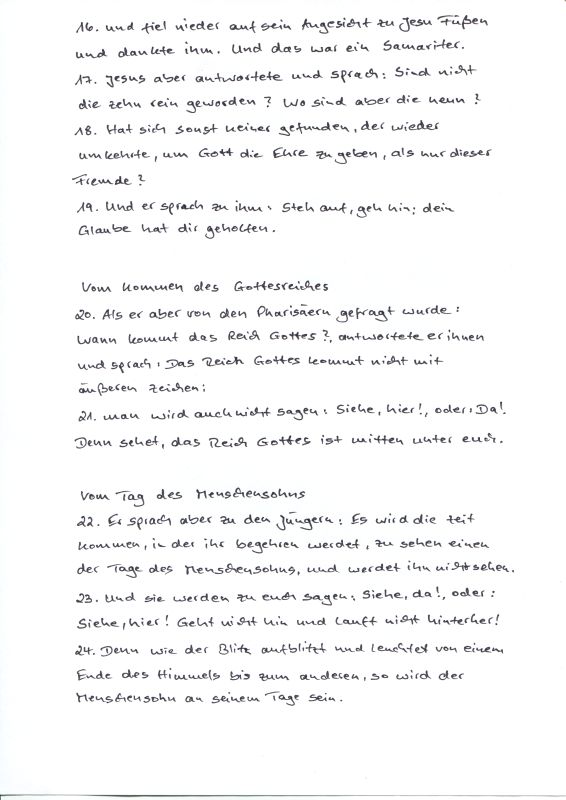 16. und fiel nieder auf sein Angesicht zu Jesu Füßen
und dankte ihm. Und das war ein Samariter.
17. Jesus aber antwortete und sprach: Sind nicht
die zehn rein geworden? Wo sind aber die neun?
18. Hat sich sonst keiner gefunden, der wieder
umkehrte, um Gott die Ehre zu geben, als nur dieser
Fremde?
19. Und er sprach zu ihm: Steh auf, geh hin; dein
Glaube hat dir geholfen.
Vom Kommen des Gottesreiches
20. Als er aber von den Pharisäern gefragt wurde:
Wann kommt das Reich Gottes?, antwortete er ihnen
und sprach: Das Reich Gottes kommt nicht mit
äußeren Zeichen;
21. man wird auch nicht sagen: Siehe, hier!, oder: Da!
Denn sehet, das Reich Gottes ist mitten unter euch.
Vom Tag des Menschensohns
22. Er sprach aber zu den Jüngern: Es wird die Zeit
kommen, in der ihr begehren werdet, zu sehen einen
der Tage des Menschensohns, und werdet ihn nicht sehen.
23. Und sie werden zu euch sagen: Siehe, da!, oder:
Siehe, hier! Geht nicht hin und lauft nicht hinterher!
24. Denn wie der Blitz aufblitzt und leuchtet von einem
Ende des Himmels bis zum anderen, so wird der
Menschensohn an seinem Tage sein.